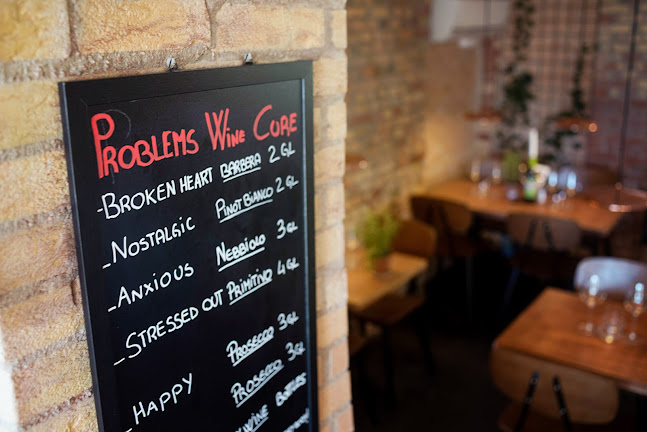 PROBLEMS WINE CURE
-BROKEN HEART BARBERA 2 GL
-NOSTALGIC PINOT BIANCO 2 GL
-ANXIOUS NEBBIOLO 3 GL
-STRESSED OUT PRIMITIVO 4 GL
PROSECCO 3 GL
-HAPPY PROSECCO 3 GL
WINE BOTTLES